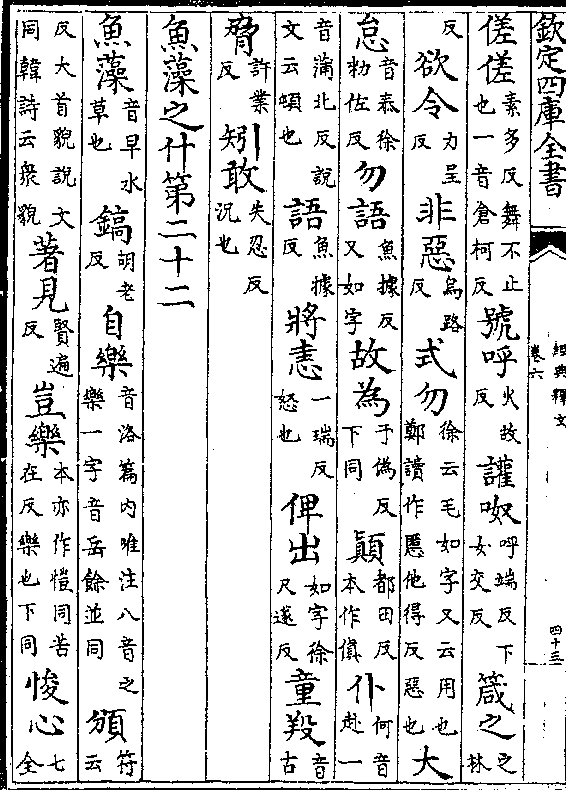 欽定四庫全書
經典釋文
卷六
四十三
傞傞素多反舞不止也一音倉柯反號呼火故反讙呶呼端反下女交反箴之之林
反欲令力呈反非惡烏路反式勿徐云毛如字又云用也鄭讀作慝他得反惡也大
怠音泰徐勑佐反勿語魚據反又如字故為于偽反下同顛都田反本作傎仆何音赴一
音蒲北反說文云頓也語魚據反將恚一瑞反怒也俾出如字徐尺遂反童羖音古
脅許業反矧敢失忍反況也
魚藻之什第二十二
魚藻音早水草也鎬胡老反自樂音洛篇内唯注八音之樂一字音岳餘並同頒符云
反大首貌說文同韓詩云衆貌著見賢遍反豈樂本亦作愷同苦在反樂也下同悛心七全